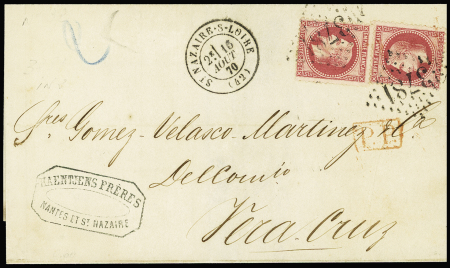 ST NAZAIRE-S-LOIRE
2E 15
AOUT
70
(42)
Sres Gomez-Velasco-Martinez y Ca
Del Comio
Vera-Cruz
P.D.
HAENTJENS FRÈRES
NANTES ET ST NAZAIRE